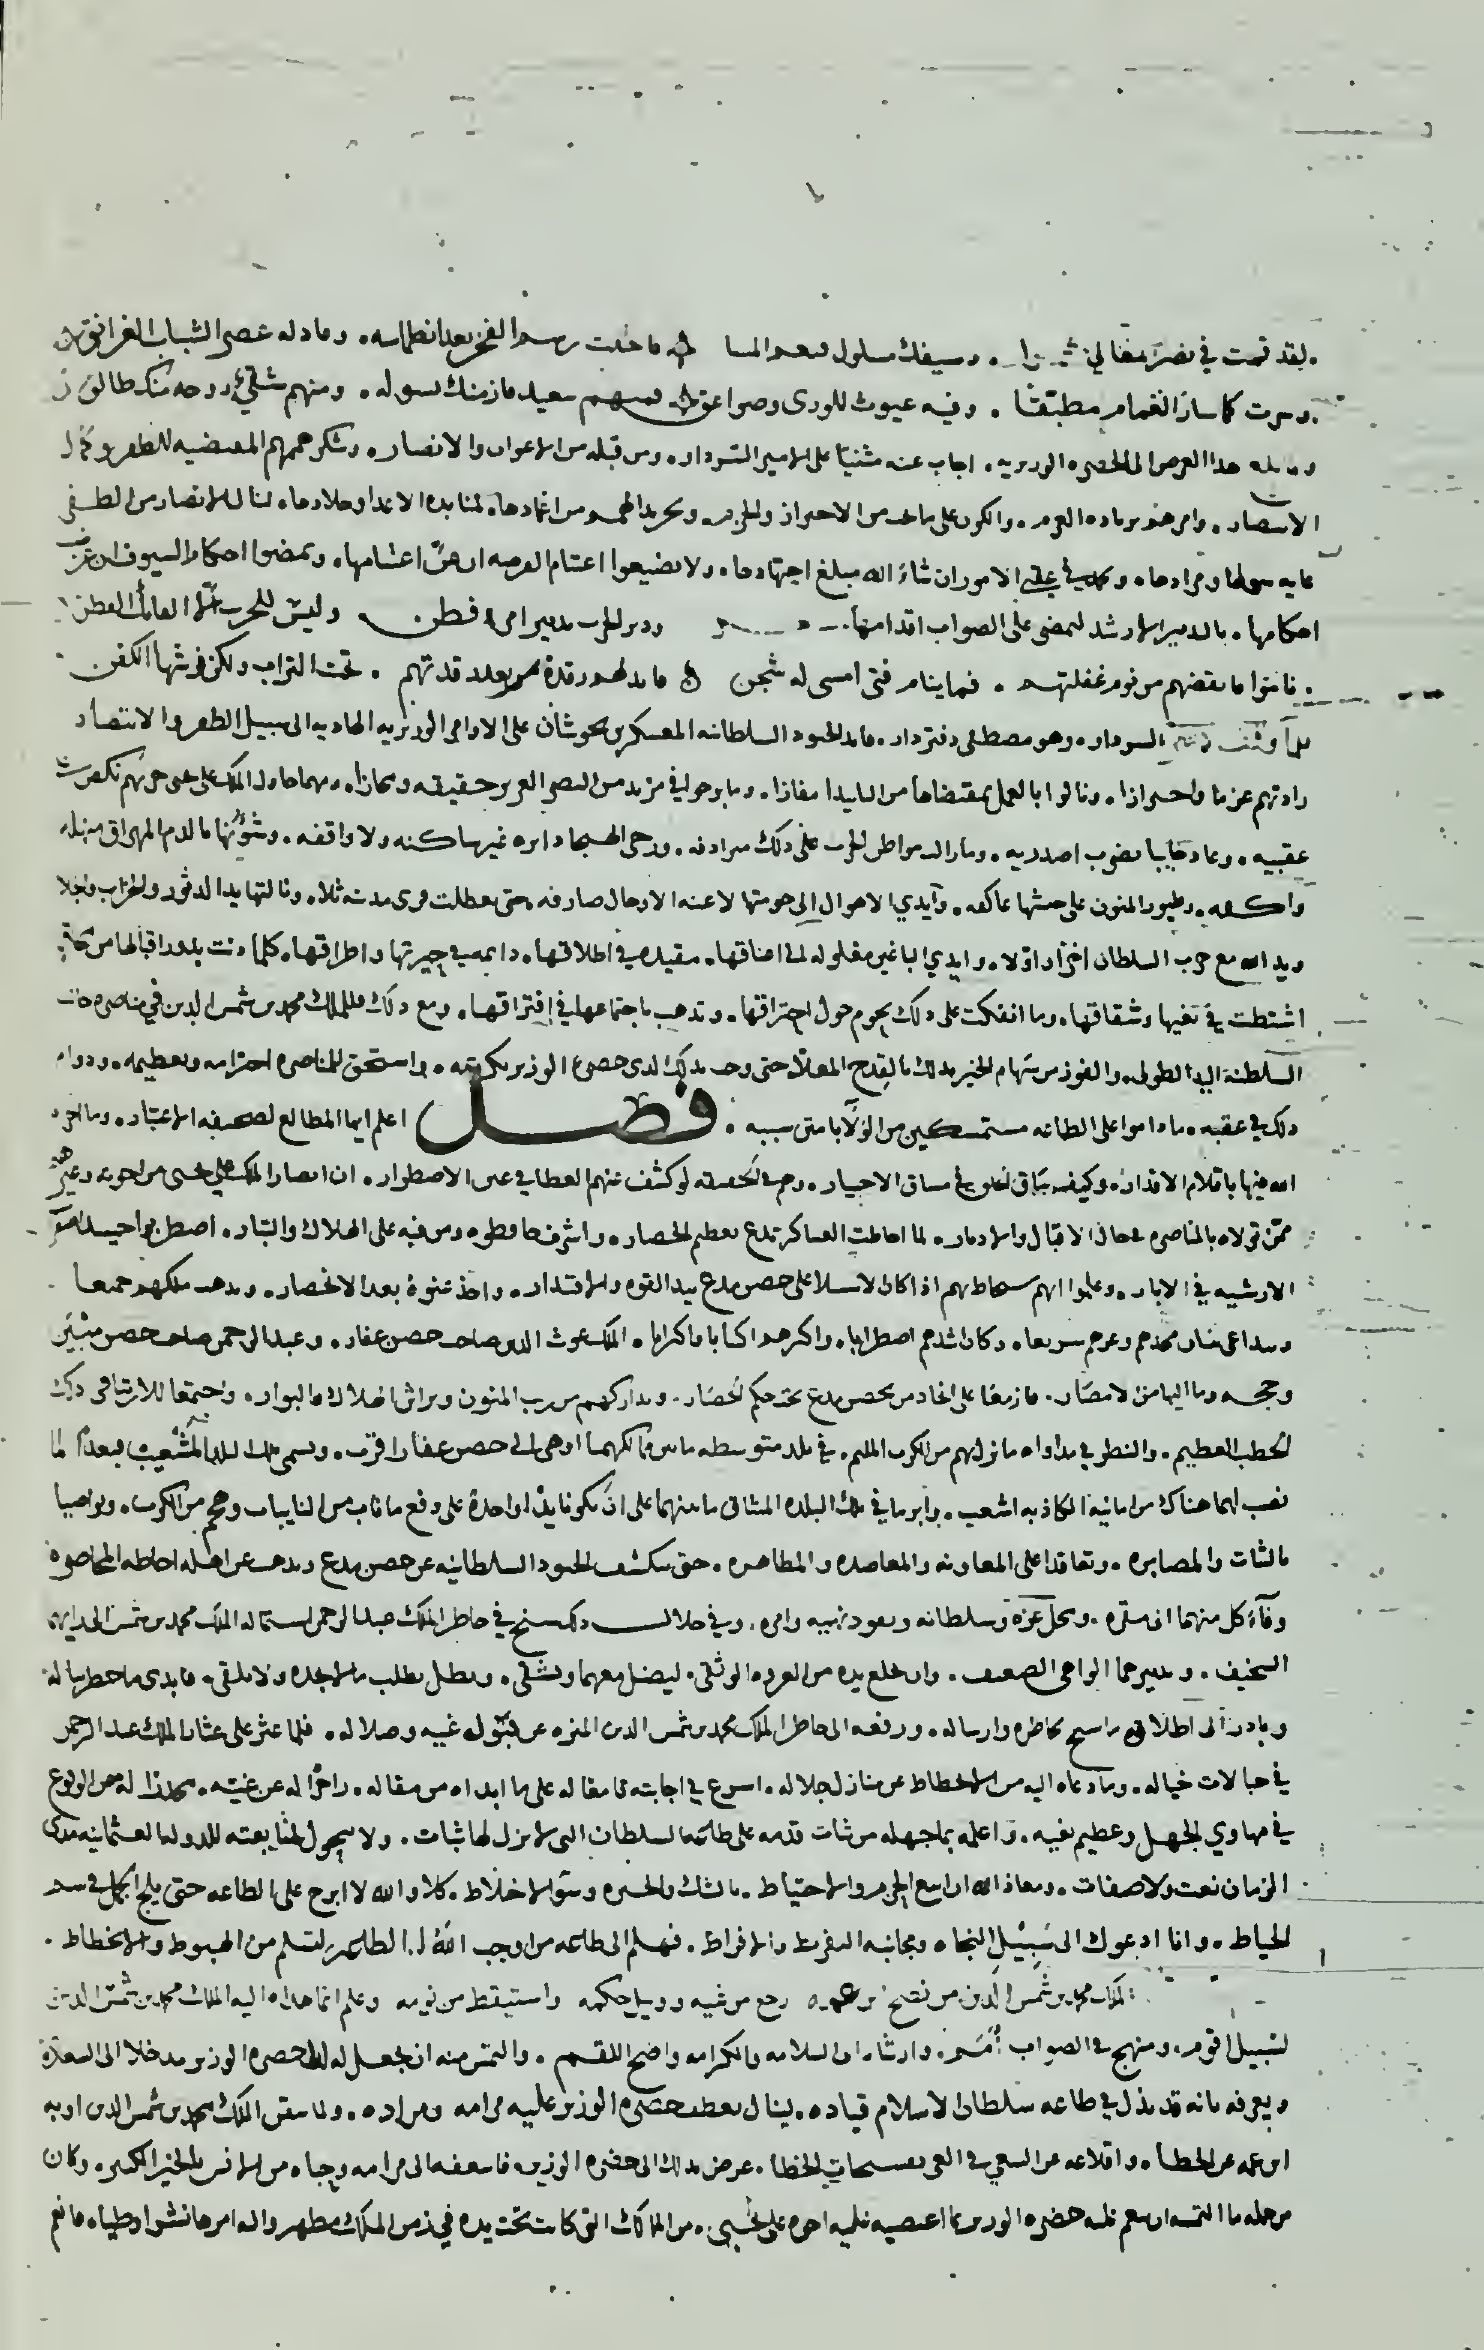 لقد قمت في نصر مغالي وسيفك مسلول فاخلت رسوم الفخر بعد انطماسه. وعاد له عصر الشباب الغرانق
وسرت كما سار الغمام مطبقا. وفيه غيوث للورى وصواعق فمنهم سعيد فاز منك بسوله. ومنهم شقي روحه منك طالق
هذا العرض الى الحضره الوزيريه. اجاب عنه مثنيا على الامير السردار. ومن قبله من الاعوان والانصار. وشكر هممهم المفضيه للظفر وكمال
الانتصار. وامرهم بزياده العزم. والكون على ما يجب من الاحتراز والحزم. وتجريد الهمم من اغمادها. لمنابذه الاعدا وجلادها. لتنال للانتصار من الطفي
غايه سولها ومرادها. وتحمد في عقبى الامور ان شاء الله مبلغ اجتهادها. ولا تضيعوا اغتنام الفرصه ان عنّ اغتنامها. وتمضوا احكام السيوف ان عزت
احكامها. بالتدبير الارشد لتمضي على الصواب اقدامها. ودبر الحرب تدبير امرء فطن وليس للحرب الا العالم الفطن
فانتهزوا ما ينقضهم من نوم غفلتهم. فما ينام فتى امسى له شجن فابدلهم رقدة من بعد رقدتهم. تحت التراب ولكن فرشها الكفن
فلما وقف السردار. وهو مصطفى دفتردار. قايد الجنود السلطانه المعسكرين بحوشان على الاوامر الوزيريه الهاديه الى سبيل الظفر والانتصار
زادتهم عزما واحترازا. ونالوا بالعمل بمقتضاها من التاييد مفازا. وما برحوا في مزيد من النصر العزيز حقيقه ومجازا. ومهما حاول الملك على يحيى حربهم نكص على
عقبيه. وعاد خايبا يضرب اصدريه. وما زالت مواطن الحرب على ذلك مترادفه. ورحى الهيجا دايره غير ساكنه ولا واقفه. وشؤنها بالدم المهراق منهله
واكفه. وطيور المنون على جيشها عاكفه. وايدي الاهوال الى حومتها لاعنه الارحال صارفه. حتى تعطلت قرى مدينه ثلا. ونالتها يد الدثور والخراب والجلا
ويد الله مع حزب السلطان اخرا واولا. وايدي الباغين مغلوله الى اعناقها. مقيده في اطلاقها. دايمه في حيرتها واطراقها. كلما دنت بلدا قبالها من
اشتطت في تغيها وشقاقها. وما انفكت على ذلك تحوم حول احتراقها. وتذهب باجتماعها في افتراقها. ومع ذلك فللملك محمد بن شمس الدين في مناصره جانب
السلطنة اليد الطولى. والفوز من سهام الخير بذلك بالقدح المعلا. حتى وجب بذلك لدى حضره الوزير تكريمه. واستحق للمناصره احترامه وتعظيمه. ودوام
ذلك في عقبه. ما داموا على الطاعه مستمسكين من الولا بامتن سببه. فصل اعلم ايها المطالع لصحيفه الاعتبار. وما اجراه
الله فيها باقلام الاقدار. وكيف يساق الخلق في مساق الاختيار. وهم في الحقيقه لو كشف عنهم الغطا في عين الاضطرار. ان انصار الملك على يحيى من اخوته وغيرهم
ممن تولاه بالمناصره في حال الاقبال والادبار. لما احاطت العساكر بمدع بعظيم الحصار. واشرف حافظوه ومن فيه على الهلاك والتبار. اضطربوا حينئذ اضطراب
الارشيه في الابار. وعلموا انهم سيحاط بهم اذا كان الاستيلا على حصن مدع بيد القوه والاقتدار. واخذ عنوة بعد الانحصار. ويذهب ملكهم جميعا
ويتداعى بنيان مجدهم وعزهم سريعا. وكان اشدهم اضطرابا. واكثرهم اكتابا واكرابا. الملك غوث الدين صاحب حصن عفار. وعبد الرحمن صاحب حصن مبين
وحجه وما اليها من الامصار. فازمعا على انجاد من بحصن مدع تحت حكم الحصار. وتداركهم من ريب المنون وبراثن الهلاك والبوار. واجتمعا للارتيا في ذلك
الخطب العظيم. والنظر في مداواه ما نزل بهم من الكرب المليم. في بلد متوسطه ما بين ممالكهما وهي الى حصن عفار اقرب. وتسمى تلك البلد المشعب فبعدا لما
نصب لهما هناك من امانيه الكاذبه اشعب. وابرما في تلك البلده الميثاق ما بينهما على ان يكونا يدا واحدة على دفع ما ناب من النايبات وهجم من الكرب. وتواصيا
بالثبات والمصابره. وتعاقدا على المعاونه والمعاضده والمظاهره. حتى تنكشف الجنود السلطانيه عن حصن مدع ويذهب عن اهله احاطه المحاصره
وفاء كل منهما الى مقره. ومحل عزه وسلطانه ونفوذ نهيه وامره. وفي خلال ذلك سنح في خاطر الملك عبد الرحمن استماله الملك محمد بن شمس الدين الى رايهما
السخيف. وتدبيرهما الواهي الضعيف. وان يخلع يده من العروه الوثقى. ليضل معهما ويشقى. ويظل يطلب ما لا يجده ولا يلقى. فابدى ما خطر بباله
وبادر الى اطلاق ما سنح بخاطره وارساله. ورفعه الى خاطر الملك محمد بن شمس الدين المنزه عن قبول غيه وضلاله. فلما عثر على عثار الملك عبد الرحمن
في حبالات خياله. وما دعاه اليه من الانحطاط عن منازل جلاله. اسرع في اجابته بما مقاله على ما ابداه من مقاله. زاجرا له عن غيته. محذرا له من الوقوع
في مهاوي الجهل وعظيم بغيه. واعلمه بما جهله من ثبات قدمه على طاعه السلطان التي لا يزل لها ثبات. ولا يحول لمتابعته للدوله العثمانيه مدى
الزمان نعت ولا صفات. ومعاذ الله ان ابيع الحزم والاحتياط. بالشك والحيره وسوء الاخلاط. كلا والله لا ابرح على الطاعه حتى يلج الجمل في سم
الخياط. وانا ادعوك الى سبيل النجاه ومجانبه التفريط والافراط. فهلم الى طاعه من اوجب الله له الطاعه لتسلم من الهبوط والانحطاط.
الملك محمد بن شمس الدين من نصح ابن عمه رجع من غيه وويل حكمه واستيقظ من نومه وعلم انما هداه اليه الملك محمد بن شمس الدين
لسبيل اقوم. ومنهج في الصواب امم. وارشاد الى السلامه والكرامه واضح اللقم. والتمس منه ان يجعل له الى حضره الوزير مدخلا الى السعاده
ويعرفه بانه قد بذل في طاعه سلطان الاسلام قياده. لينال بعطف حضره الوزير عليه مرامه ومراده. ولما تيقن الملك محمد بن شمس الدين اوبه
ابن عمه عن الخطا. واقلاعه عن السعي في الغي بفسيحات الخطا. عرض بذلك الى حضره الوزير فاسعفه الى مرامه وحباه من الانس بالخير الكثير. وكان
من جمله ما التمسه ان ينعم عليه حضره الوزير بما اغتصبه عليه اخوه على يحيى. من الممالك التي كانت تحت يده في زمن الملك مطهر والده امرها نشرا وطيا. فانعم